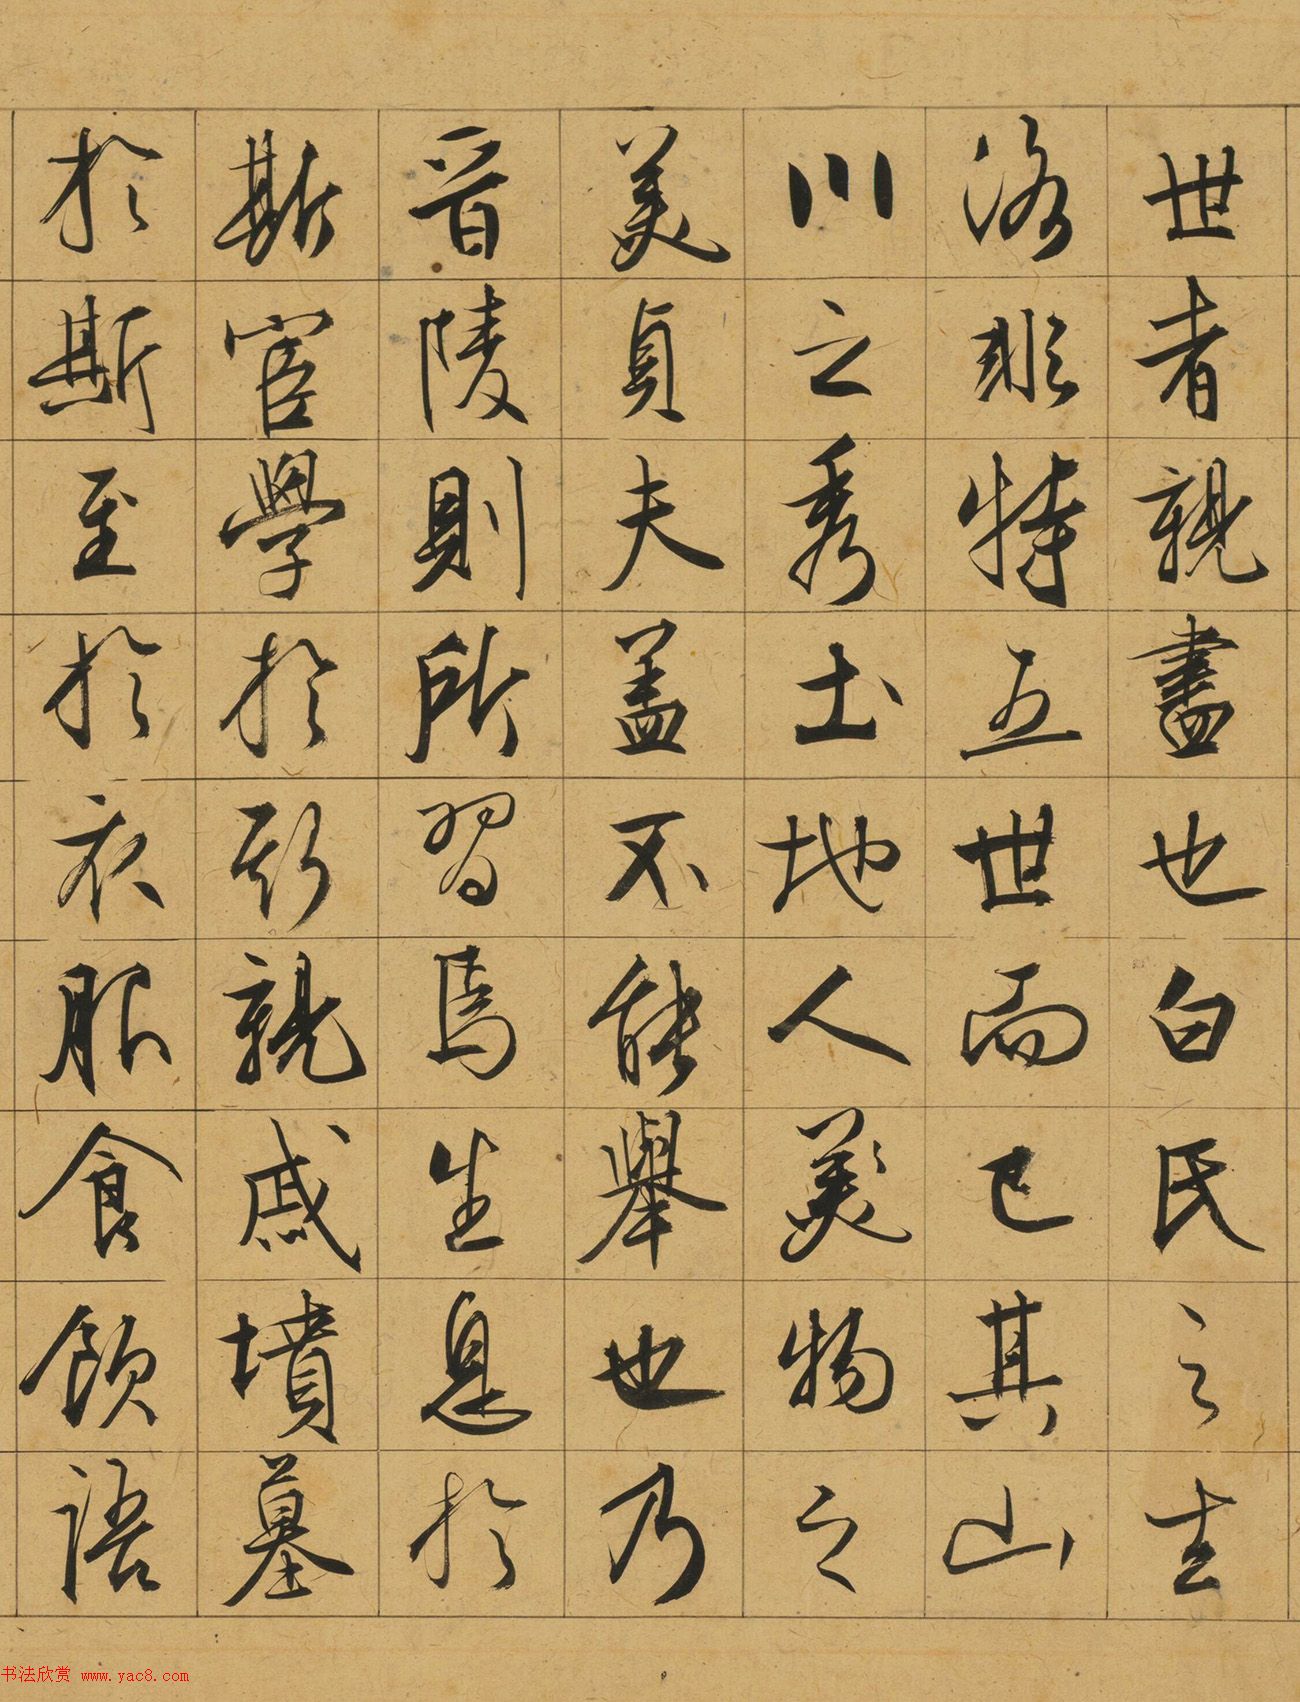 世者親盡也白氏之去
洛非特五世而已其山
川之秀土地人美物之
美貞夫盖不能舉也乃
晉陵則所習焉生息於
斯宦學於斯親戚墳墓
於斯至於衣服食飲語
书法欣赏 www.yac8.com